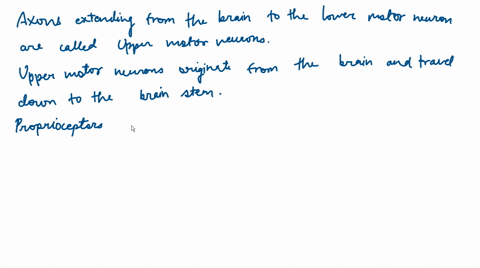 Axons extending from the brain to the lower motor neuron
are called Upper motor neurons.
Upper motor neurons originate from the brain and travel
down to the brain stem.
Proprioceptors